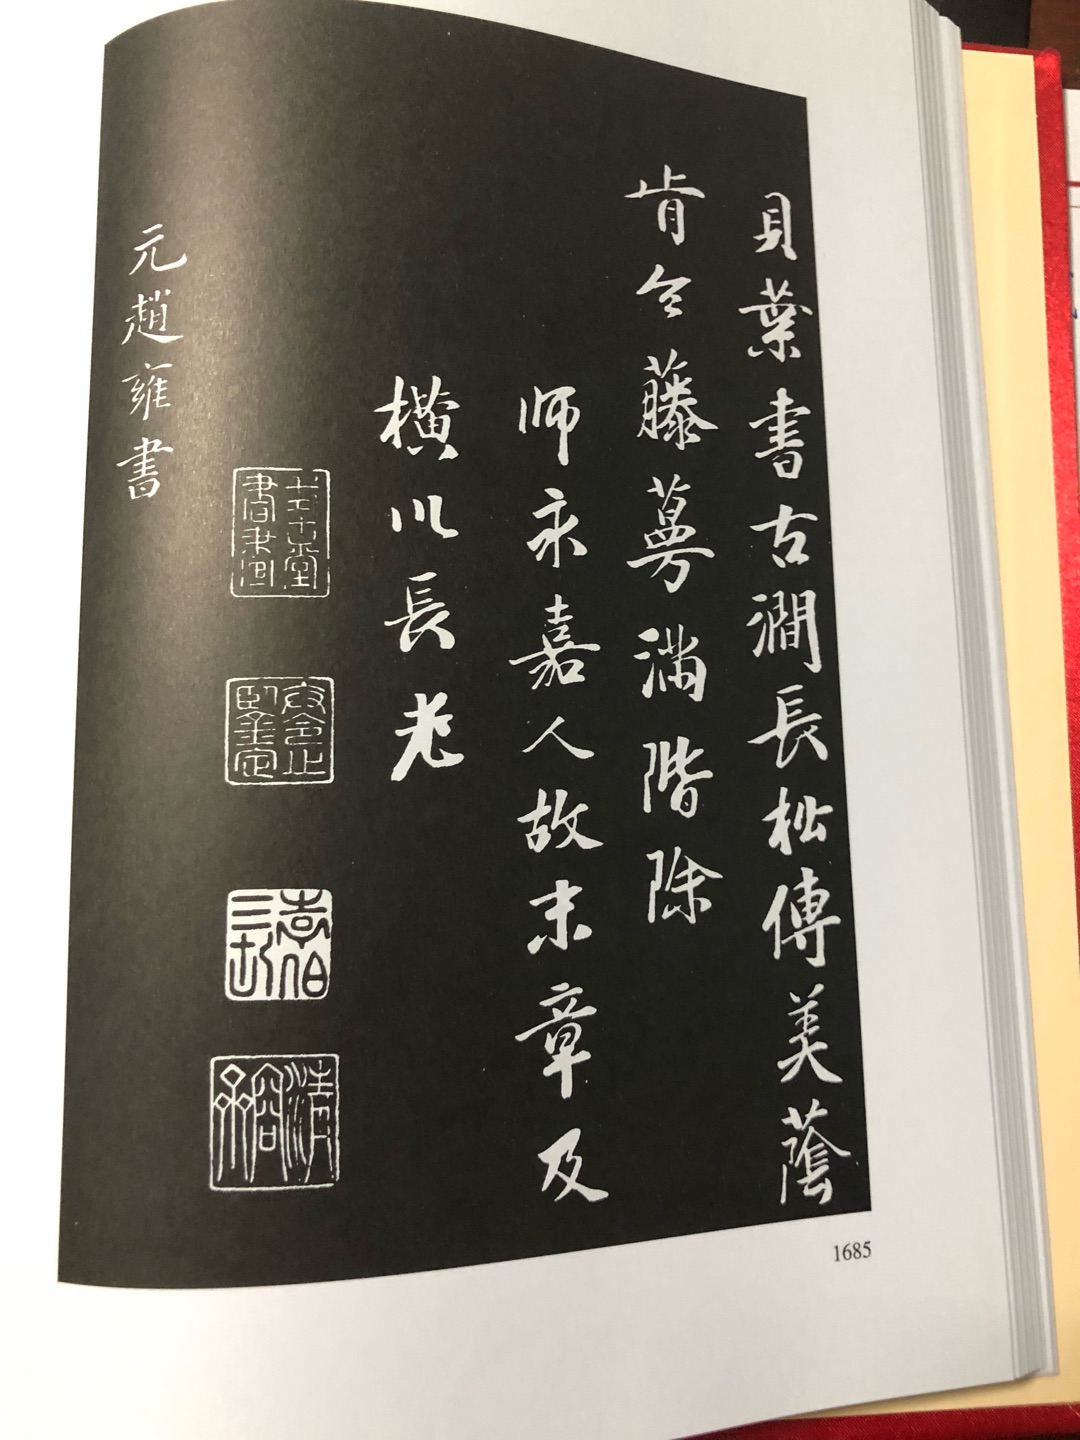 貝葉書古澗長松傳美蔭
肯令藤蔓滿階除
师永嘉人故末章及
橫川長老
元趙雍書
1685